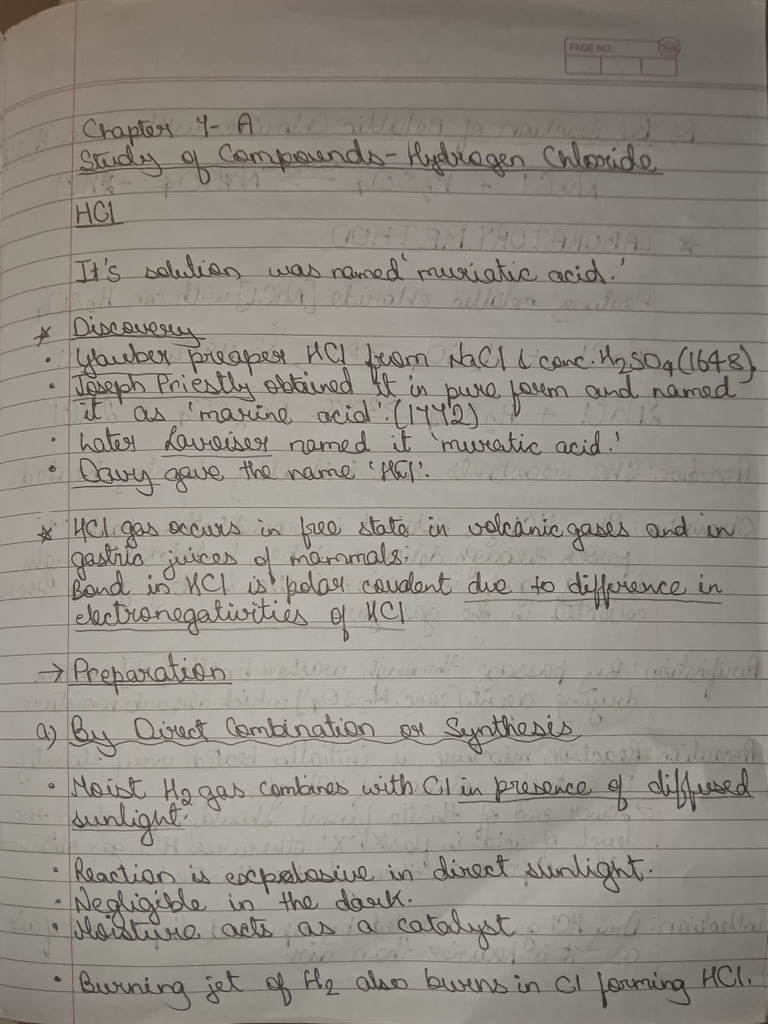 PAGE NO.:
Chapter 7-A
Study of Compounds-Hydrogen Chloride
HCl
It's solution was named 'muriatic acid.'
* Discovery
• Glauber preaper HCl from NaCl & conc. H₂SO₄ (1648).
• Joseph Priestly obtained it in pure form and named
it as 'marine acid'. (1772)
• Later Lavoiser named it 'muratic acid.'
• Davy gave the name 'HCl'.
* HCl gas occurs in free state in volcanic gases and in
gastric juices of mammals.
Bond in HCl is polar covalent due to difference in
electronegativities of HCl
→ Preparation
a) By Direct Combination or Synthesis
• Moist H₂ gas combines with Cl in presence of diffused
sunlight.
• Reaction is expolosive in direct sunlight.
• Negligible in the dark.
• Moisture acts as a catalyst
• Burning jet of H₂ also burns in Cl forming HCl.